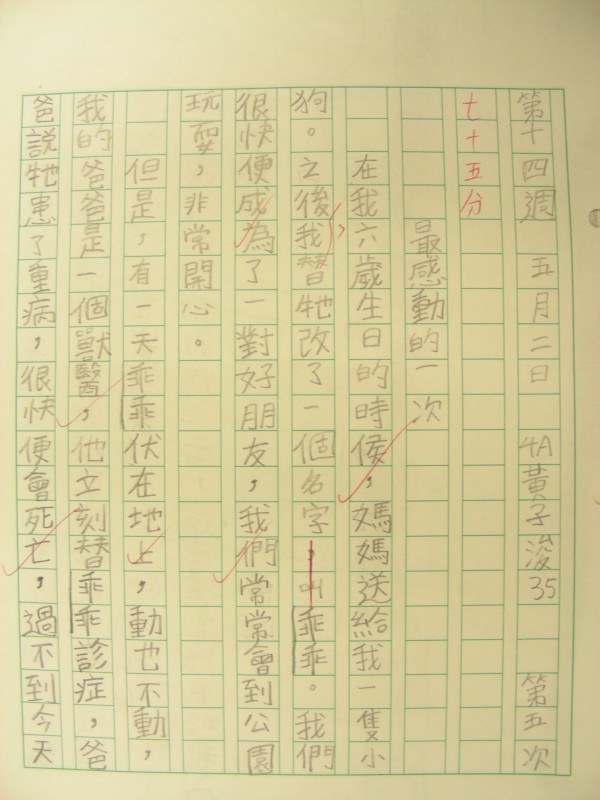 第十四週　五月二日　4A黃子浚35　第五次
七十五分
最感動的一次
在我六歲生日的時侯，媽媽送給我一隻小
狗。之後我替牠改了一個名字，叫乖乖。我們
很快便成為了一對好朋友，我們常常會到公園
玩耍，非常開心。
但是，有一天乖乖伏在地上，動也不動，
我的爸爸是一個獸醫，他立刻替乖乖診症，爸
爸說牠患了重病，很快便會死亡，過不到今天